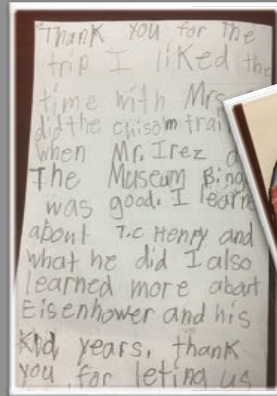 Thank you for the
trip I liked the
time with Mrs
did the chisolm trai
when Mr. Irez a
The Museum Bing
was good. I learn
about T.C Henry and
what he did I also
learned more about
Eisenhower and his
Kid years, thank
you for leting us